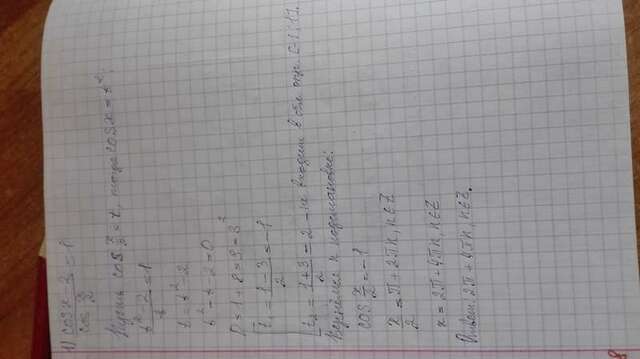 1) cos x - 2 / cos x/2 = 1
Пусть cos x/2 = t, тогда cos x = t²,
t² - 2 / t = 1
t = t² - 2
t² - t - 2 = 0
D = 1 + 8 = 9 = 3²
t₁ = 1 - 3 / 2 = -1
t₂ = 1 + 3 / 2 = 2 - не входит в обл. опр. [-1; 1].
Вернёмся к подстановке:
cos x/2 = -1
x/2 = π + 2πn, n∈Z
x = 2π + 4πn, n∈Z
Ответ: 2π + 4πn, n∈Z.